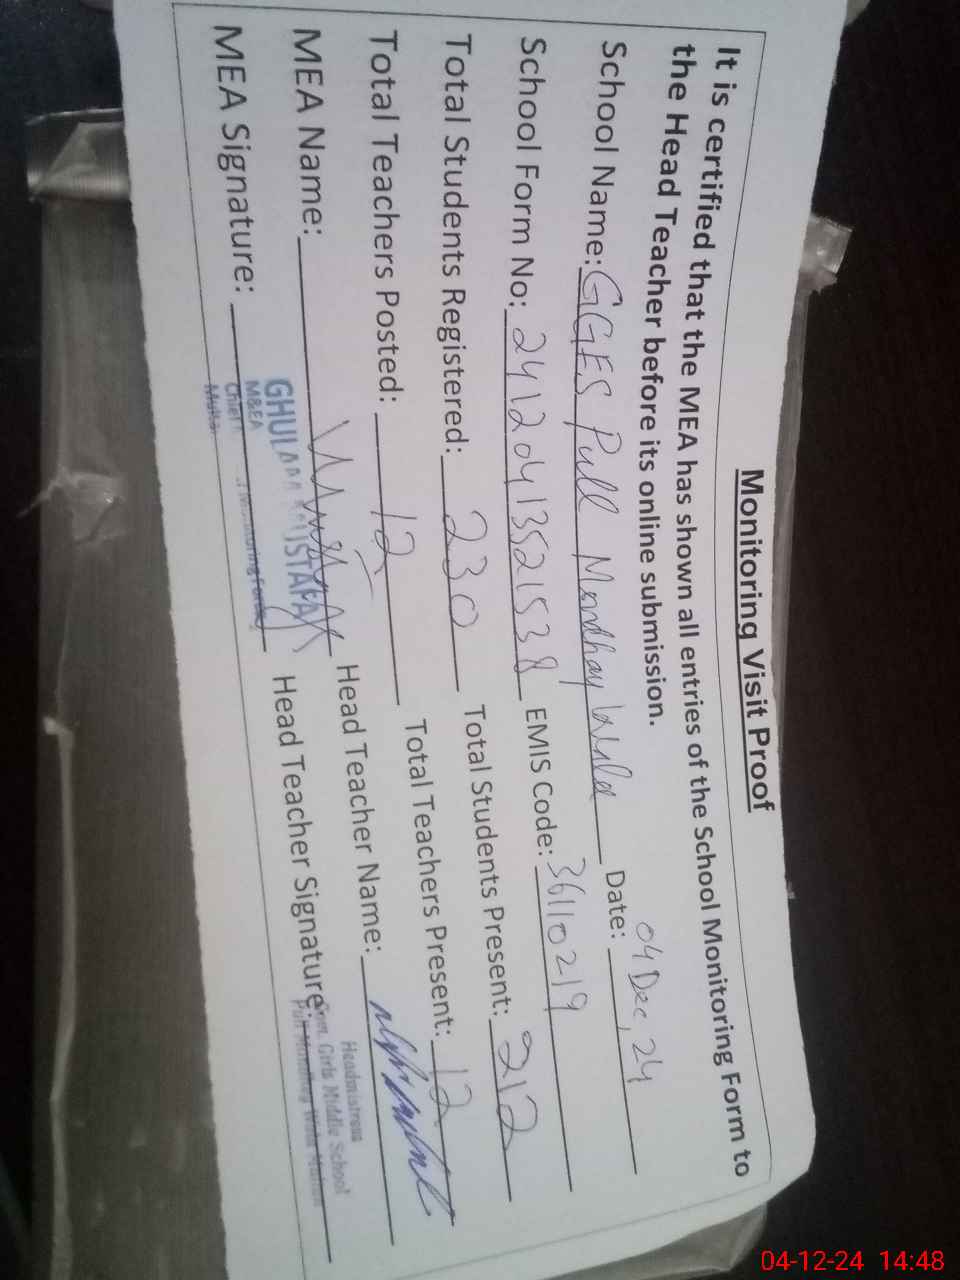 Monitoring Visit Proof
It is certified that the MEA has shown all entries of the School Monitoring Form to
the Head Teacher before its online submission.
School Name: GGES Pull Mondhay Wala Date: 04 Dec, 24
School Form No: 24120413521538 EMIS Code: 36110219
Total Students Registered: 230 Total Students Present: 212
Total Teachers Posted: 12 Total Teachers Present: 12
MEA Name: Head Teacher Name:
MEA Signature: Head Teacher Signature:
GHULAM MUSTAFA
M&EA
Chief Monitoring Force
Multan
Headmistress
Govt. Girls Middle School
Pull Mondhay Wala Multan
04-12-24 14:48